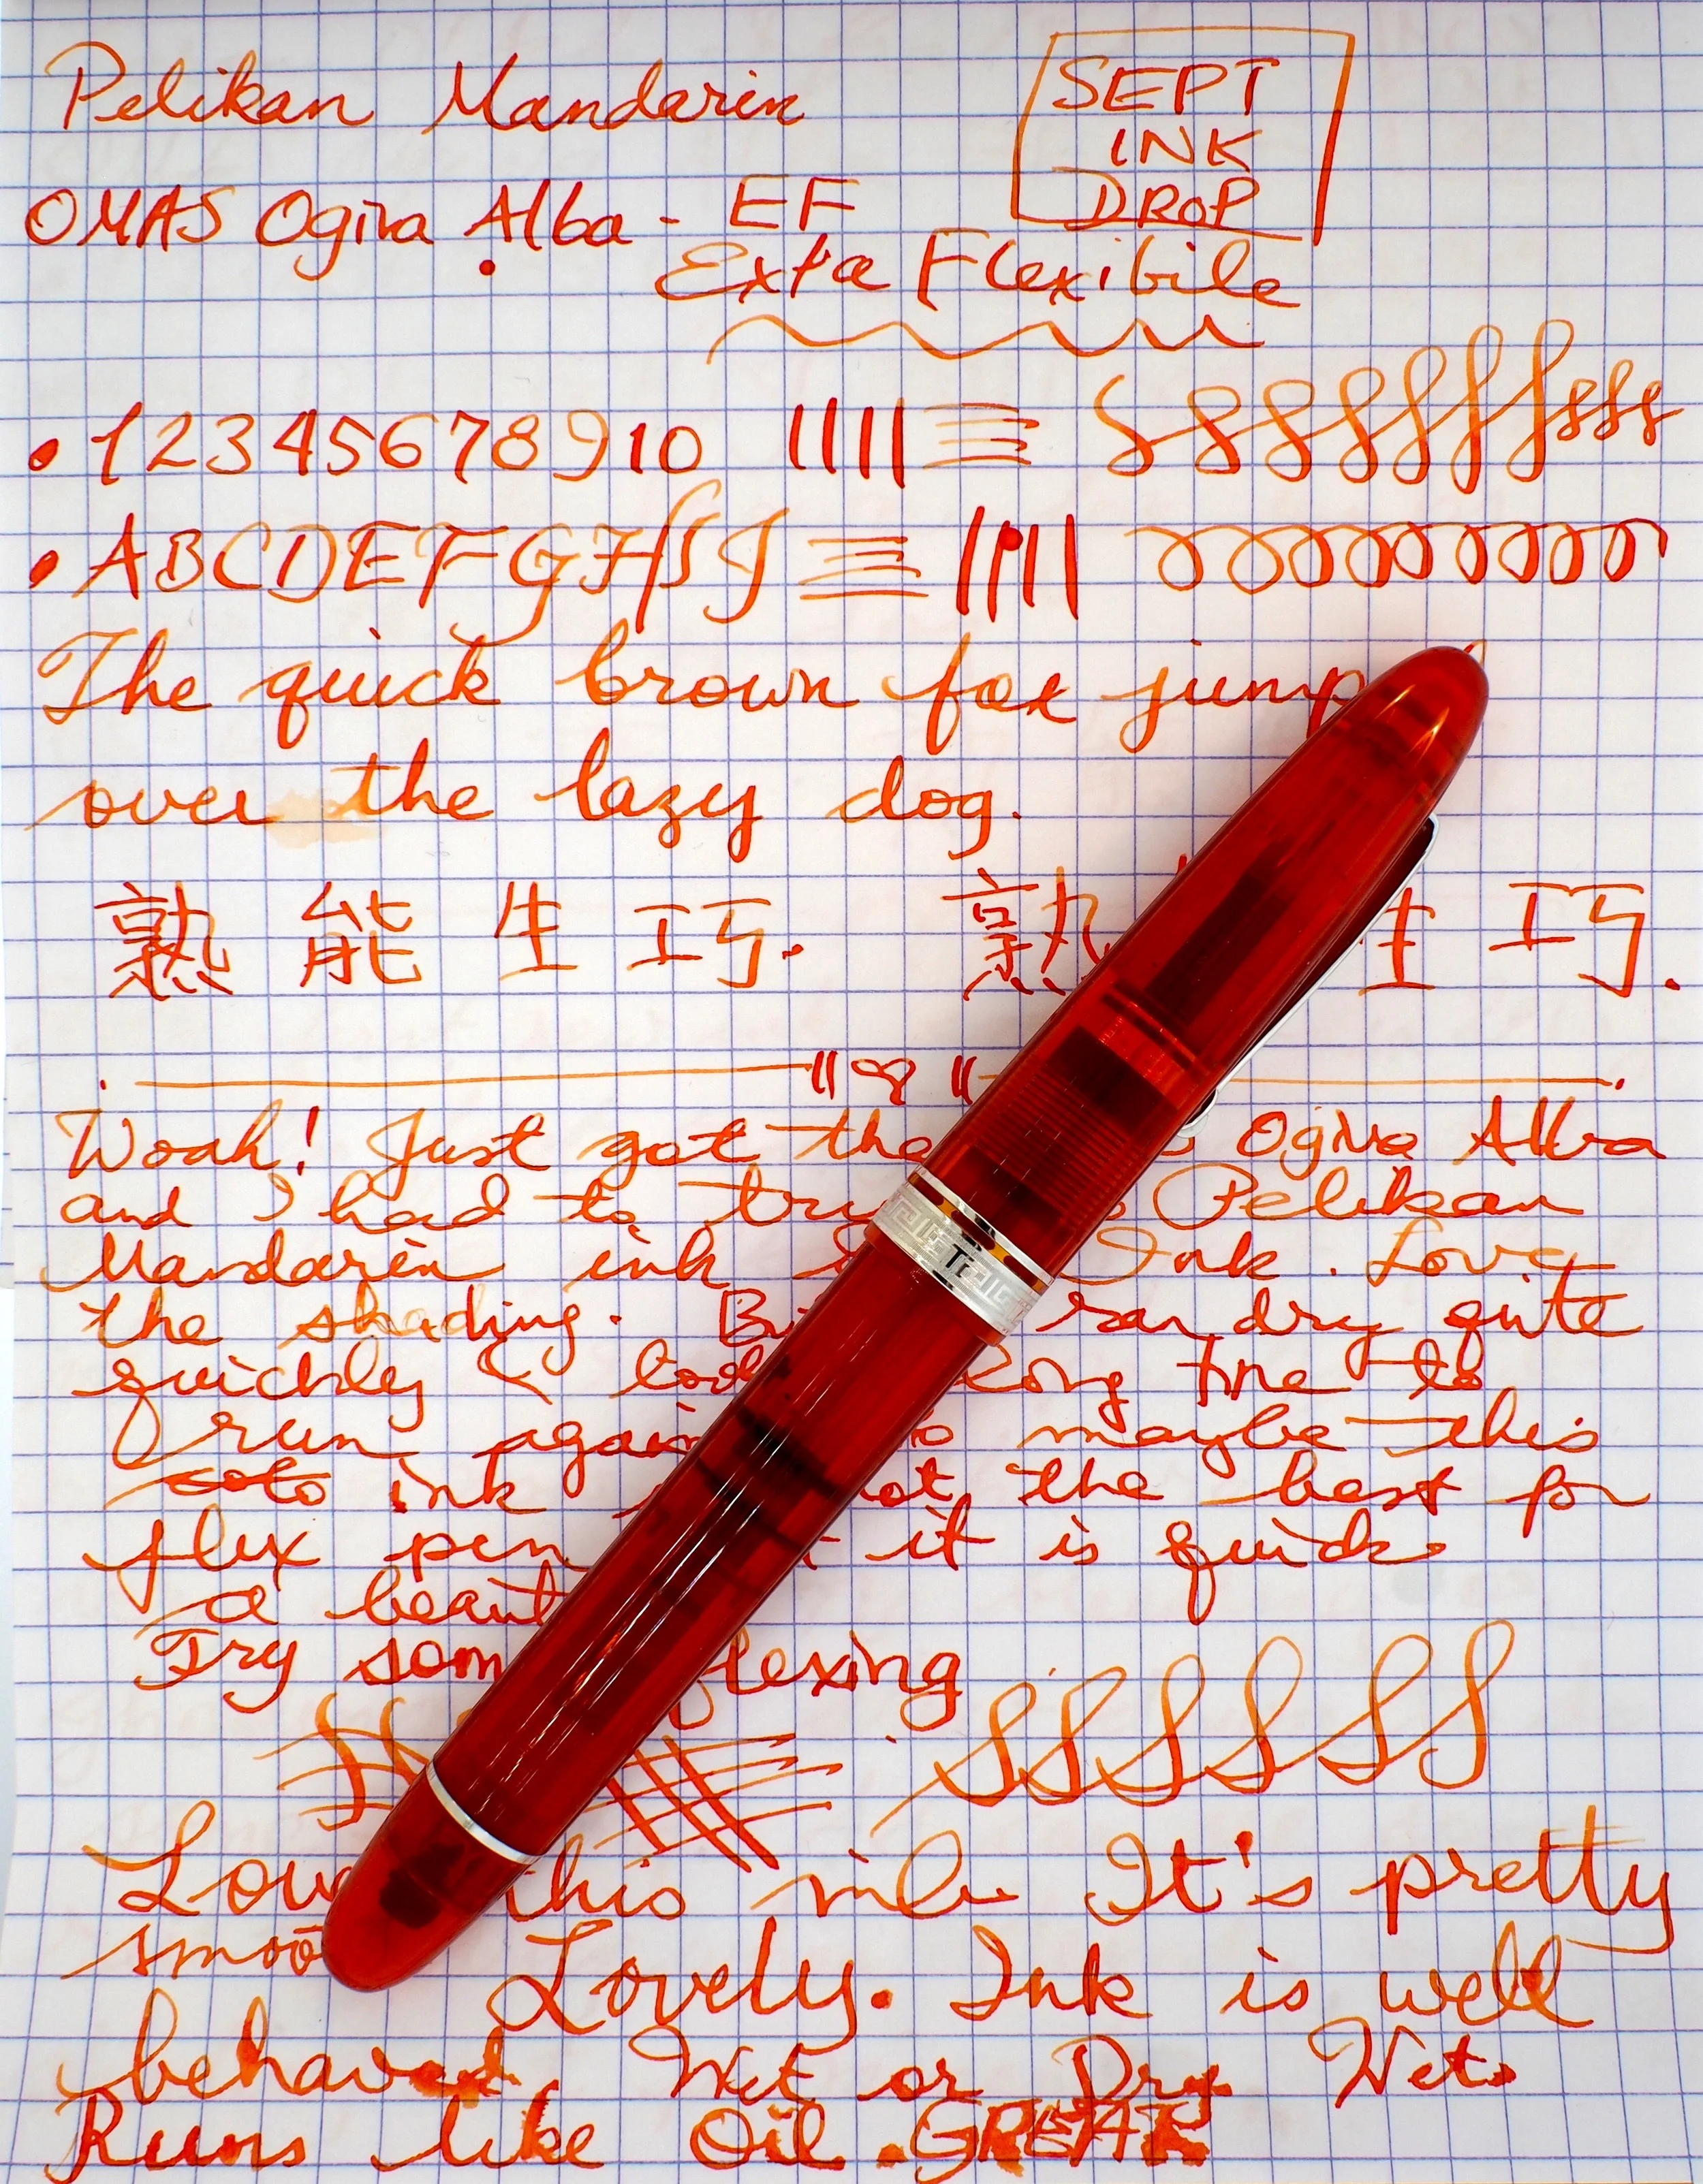 Pelikan Mandarin
SEPT
INK
DROP
OMAS Ogiva Alba - EF
Extra Flexibile
1 2 3 4 5 6 7 8 9 10
A B C D E F G H I J
The quick brown fox jump
over the lazy dog.
熟能生巧. 熟 生巧.
Woah! Just got the Ogiva Alba
and I had to try Pelikan
Mandarin ink Ink. Love
the shading. ran dry quite
quickly & took long time to
run again maybe this
ink not the best for
flex pen it is quick
a
Try flexing
Ti
Love this nib It's pretty
Lovely. Ink is well
behaved Wet or Dry. Wet.
Runs like Oil. GREAT